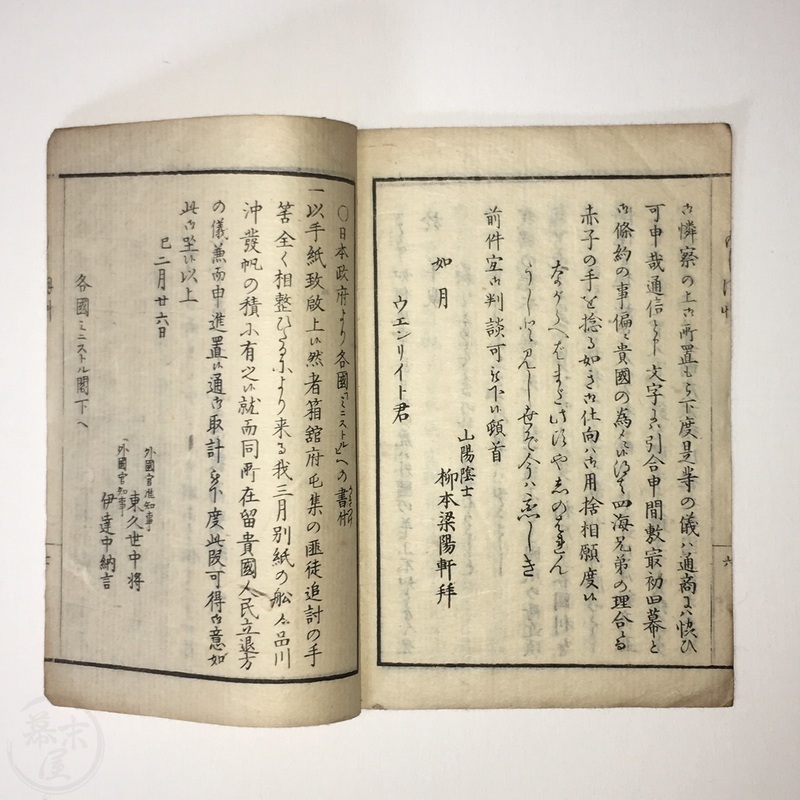 御憐察の上御所置も被下度是等の儀ハ通商にハ快ひ
可申哉通信と申文字にハ引合申間敷最初旧幕と
御條約の事偏ニ貴國の為メニ御渡を四海兄弟の理合ある
赤子の手を捻る如き御仕向ハ御用捨相願度候
なからへばまた此頃やしのばれん
うしと見し世ぞ今ハ恋しき
前件宜御判談可被下候頓首
如月
山陽陰士
柳本梁陽軒拜
ウエンリイト君
〇日本政府より各國ミニストルへの書附
一以手紙致啟上候然者箱舘府屯集の匪徒追討の手
筈全く相整ひたるにより来る我三月別紙の舩々品川
沖發帆の積ふ有之候就而同所在留貴國人民立退方
の儀兼而申進置候通御取計被下度此段可得御意如
此御坐候以上
巳二月廿六日
外國官准知事
東久世中将
外國官知事
伊達中納言
各國ミニストル閣下へ
六
幕末屋